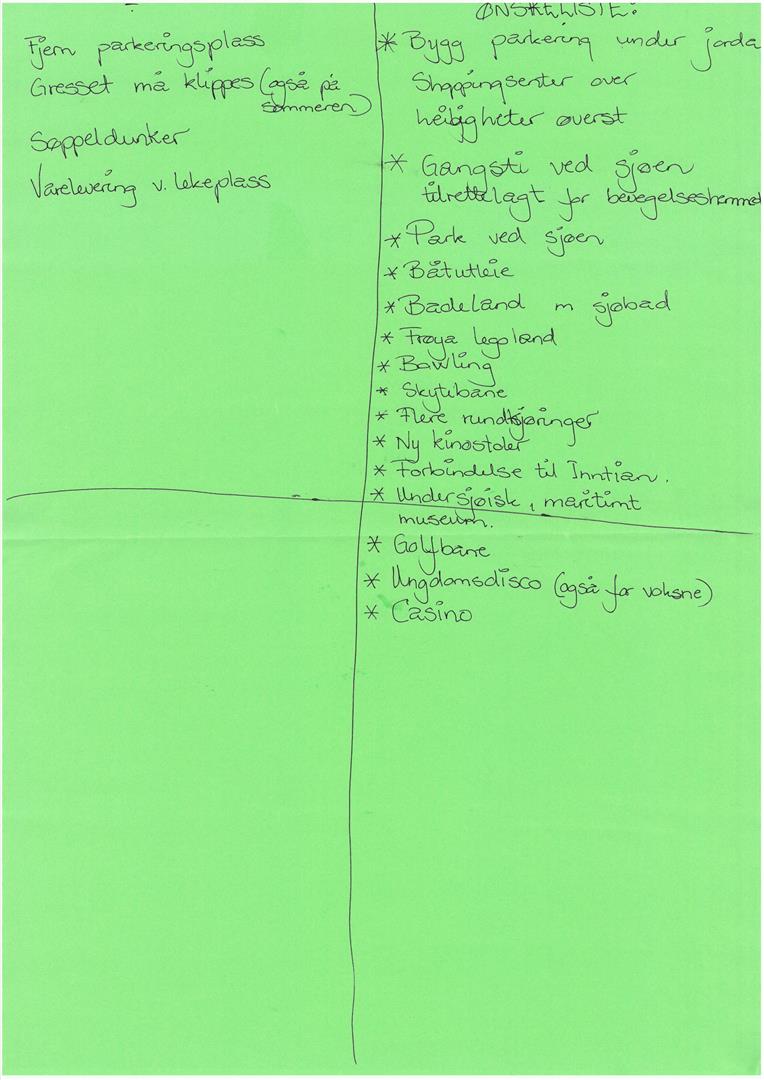 Fjern parkeringsplass
Gresset må klippes (også på
sommeren)
Søppeldunker
Varelevering v. lekeplass
ØNSKELISTE:
* Bygg parkering under jorda
Shoppingsenter over
leiligheter øverst
* Gangsti ved sjøen
tilrettelagt for bevegelseshemmed
* Park ved sjøen
* Båtutleie
* Badeland m sjøbad
* Frøya legoland
* Bowling
* Skytebane
* Flere rundkjøringer
* Ny kinostoler
* Forbindelse til Inntian.
* Undersjøisk, maritimt
museum.
* Golfbane
* Ungdomsdisco (også for voksne)
* Casino